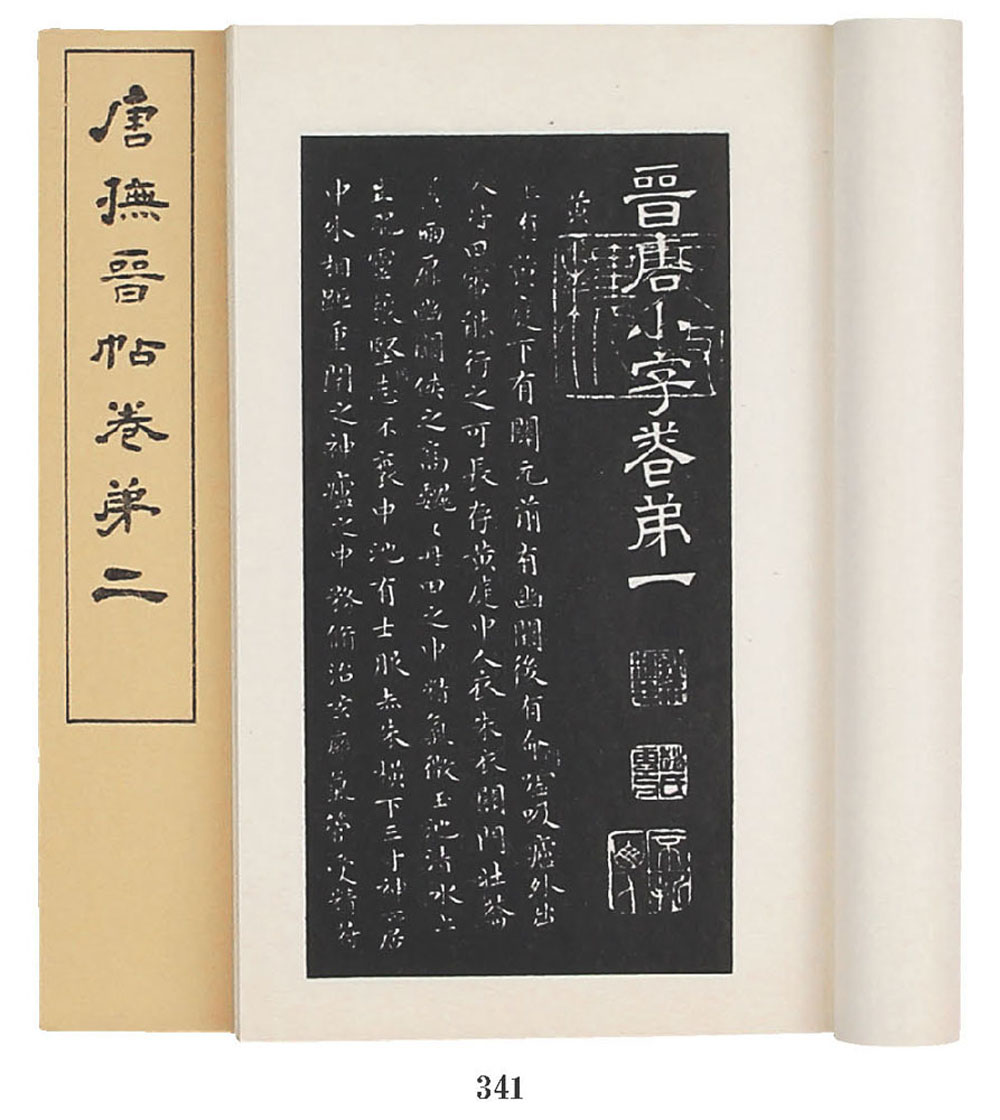 唐撫晉帖卷弟二
晉唐小字卷弟一
黃
上有黃庭下有關元前有幽闕後有命噓吸廬外出
入丹田審能行之可長存黃庭中人衣朱衣關門壯籥
蓋兩扉幽闕俠之高魏〻丹田之中精氣微玉池清水上
生肥靈根堅志不衰中池有士服赤朱橫下三寸神所居
中外相距重閉之神廬之中務脩治玄膺氣管受精符
341